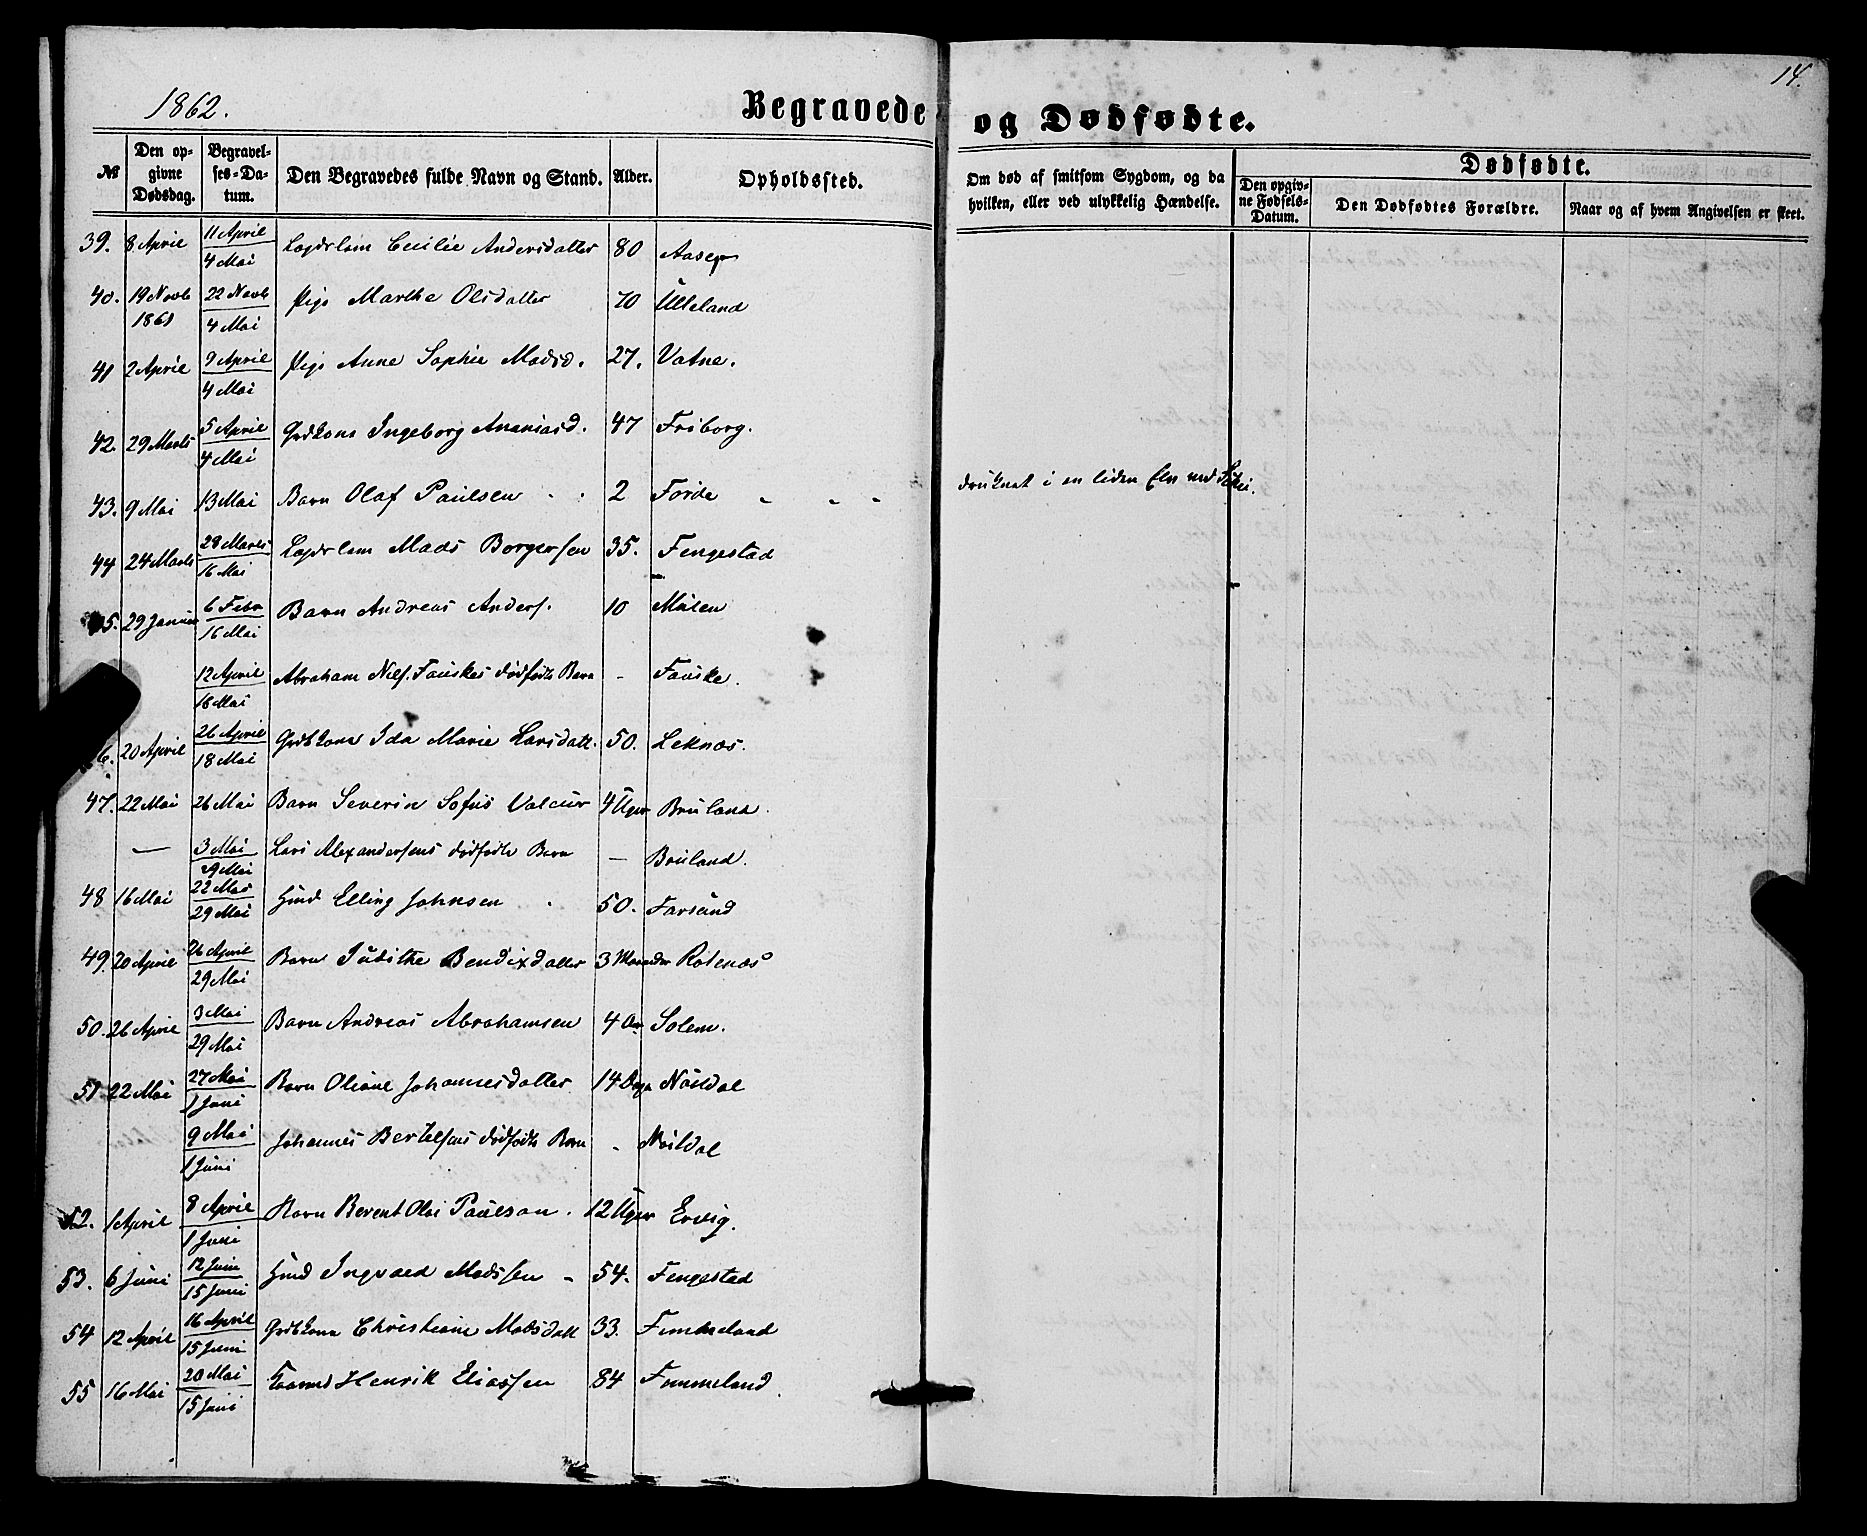 1862.
Begravede og Dødfødte.
14.
№ Den opgivne Dødsdag. Begravelses-Datum. Den Begravedes fulde Navn og Stand. Alder. Opholdssted. Om død af smitsom Sygdom, og da hvilken, eller ved ulykkelig Hændelse. Dødfødte. Den opgivne Fødsels-Datum. Den Dødfødtes Forældre. Naar og af hvem Angivelsen er skeet.
39. 8 April 11 April 4 Mai Lægdslem Cecilie Andersdatter 80
40. 19 Novb 1861 22 Novb 4 Mai Pige Marthe Olsdatter 70 Ulleland
41 2 April 9 April 4 Mai Pige Anne Sophie Madsd. 27. Vatne.
42. 29 Marts 5 April 4 Mai Grdkone Ingeborg Ananiasd. 47 Friborg.
43. 9 Mai 13 Mai Barn Olaf Paulsen 2 Førde - - - druknet i en liden Elv ved
44 24 Marts 28 Marts 16 Mai Lægdslem Mads Borgersen 35. Fengestad
45. 29 Januar 6 Febr 16 Mai Barn Andreas Anders. 10
12 April 16 Mai Abraham Nils. Fauskes dødfødte Barn - Fauske.
6. 20 April 26 April 18 Mai Grdkone Ida Marie Larsdatt. 50. Leknæs.
47. 22 Mai 26 Mai Barn Severin Sofus 4 Uger Bruland.
— 3 Mai 29 Mai Lars Alexandersens dødfødte Barn — Bruland.
48 16 Mai 22 Mai 29 Mai Hmd Elling Johnsen 50. Farsund
49. 20 April 26 April 29 Mai Barn Judithe Bendixdatter 3 Maaneder Rotenæs
50. 26 April 3 Mai 29 Mai Barn Andreas Abrahamsen 4 Aar Solem.
51 22 Mai 27 Mai 1 Juni Barn Oliane Johannesdatter 14 Dage Nøildal
9 Mai 1 Juni Johannes Bertelsens dødfødte Barn - Nøildal
52. 1 April 8 April 1 Juni Barn Berent Olai Paulsen. 12 Uger Ervig.
53. 6 Juni 12 Juni 15 Juni Hmd Ingvald Madssen - 54. Fengestad
54 12 April 16 April 15 Juni Grdkone Christiane Madsdatt 33. Femmeland
55 16 Mai 20 Mai 15 Juni Henrik Eliassen 84 Femmeland.